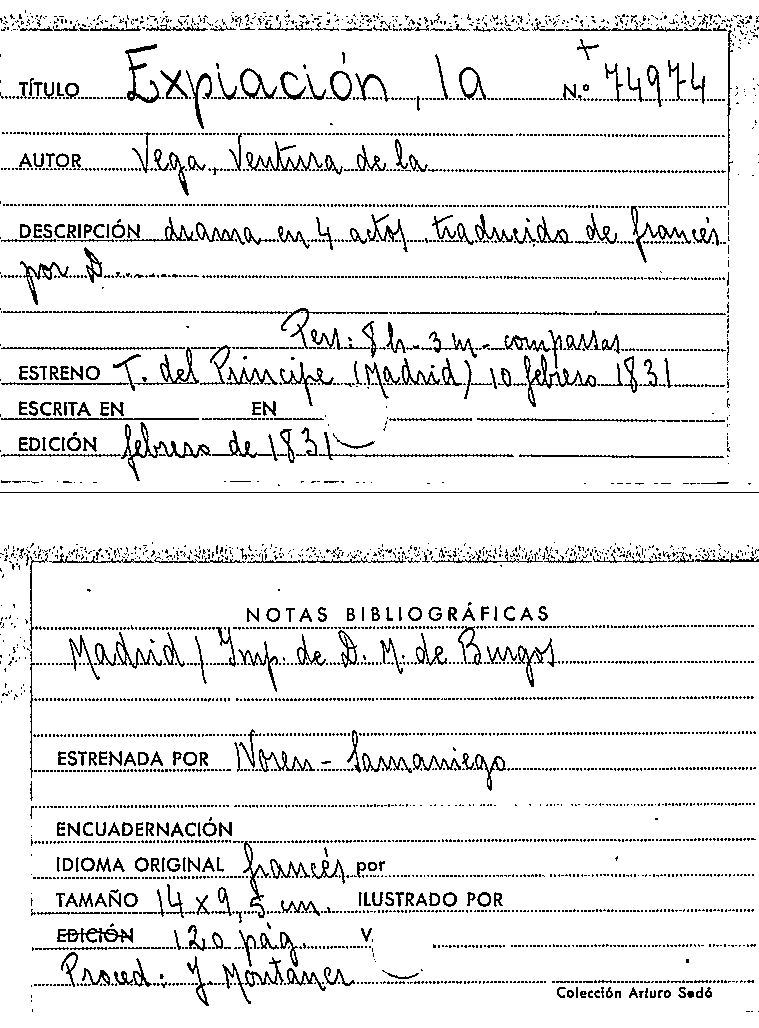 TÍTULO Expiación, la N.º 74974
AUTOR Vega, Ventura de la
DESCRIPCIÓN drama en 4 actos traducido de francés
por D......
Pers: 8 h - 3 m - comparsas
ESTRENO T. del Príncipe (Madrid) 10 febrero 1831
ESCRITA EN EN
EDICIÓN febrero de 1831
NOTAS BIBLIOGRÁFICAS
Madrid / Imp. de D. M. de Burgos
ESTRENADA POR Noren - Samaniego
ENCUADERNACIÓN
IDIOMA ORIGINAL francés por
TAMAÑO 14 x 9,5 cm. ILUSTRADO POR
EDICIÓN 120 pág. V
Proced: J. Montaner
Colección Arturo Sedó